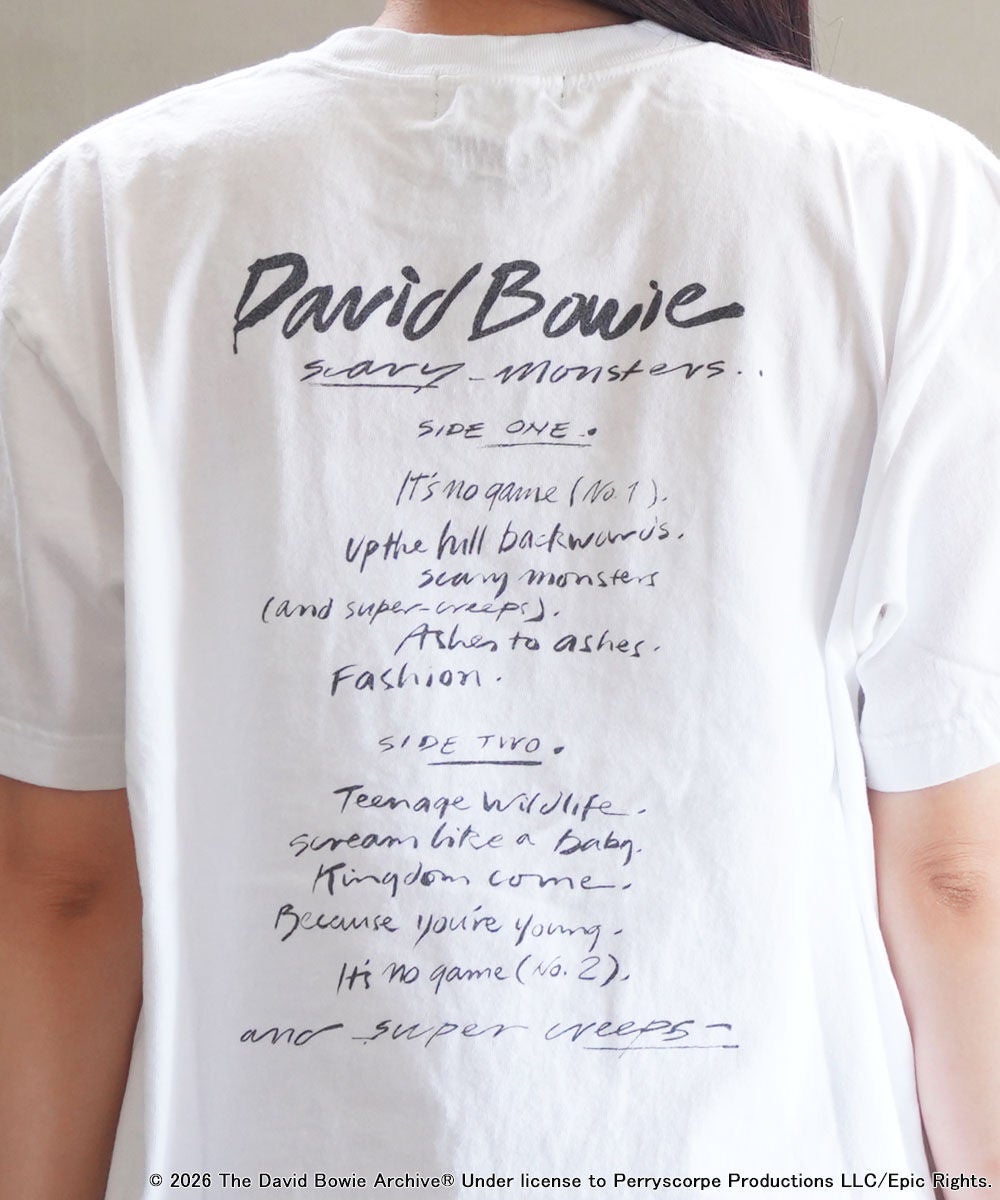 David Bowie
scary - monsters..
SIDE ONE.
It's no game (No. 1).
up the hill backwards.
scary monsters
(and super-creeps).
Ashes to ashes.
Fashion.
SIDE TWO.
Teenage Wildlife.
scream like a baby.
Kingdom come.
Because you're young.
It's no game (No. 2).
and super creeps-
© 2026 The David Bowie Archive® Under license to Perryscorpe Productions LLC/Epic Rights.